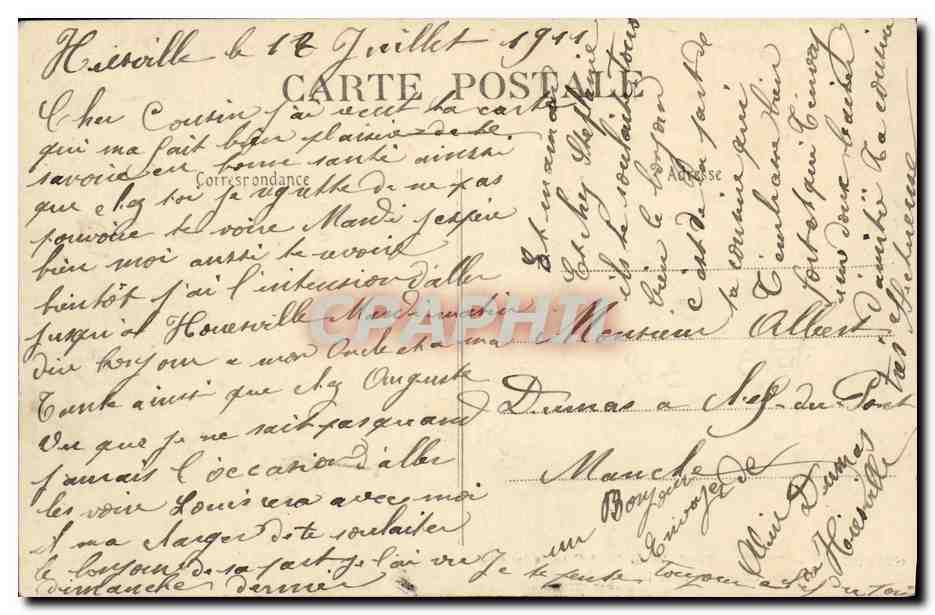 Hiesville le 12 Juillet 1911
CARTE POSTALE
Correspondance
Adresse
Cher Cousin j'ai recut ta carte
qui ma fait bien plaisir de te
savoire en bonne santé ainsi
que chez toi je regrette de ne pas
pouvoire te voire Mardi j'espère
bien moi aussi te revoire
bientôt j'ai l'intension d'aller
jusqu'a Houesville Mardi matin
dire bonjour a mon Oncle et a ma
Tante ainsi que chez Auguste
Vu que je ne sait pas quand
j'aurais l'occasion d'aller
les voire Louis rera avec moi
et ma charger de te souhaiter
le bonjour de sa part je l'ai vu
dimanche dernier
Je te toujour
Et maman
Et chez Stephanie
ils te souhaite tous
bien le bonjour
c'est de la part de
ta cousine qui
T'embrasse bien
fort et qui T'envoi
une douce
d'amitié Ta cousine
Monsieur Albert
Dumas a
du Pont
Manche
un Bonjour
Envoyez de
Dumas
Houesville
CPAPHIL